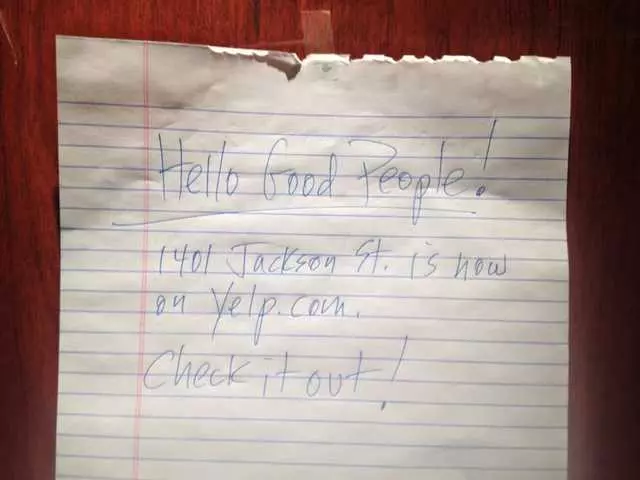 Hello Good People!
1401 Jackson St. is now
on Yelp.com.
Check it out!